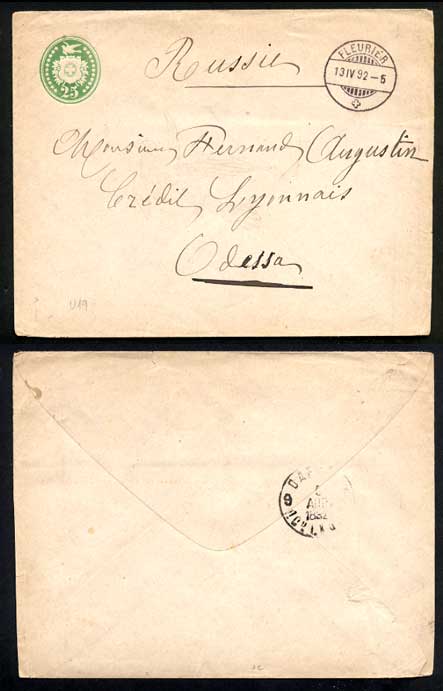 25
Russie
FLEURIER
13 IV 92 - 5
Monsieur Fernand Augustin
Crédit Lyonnais
Odessa
U19
1892